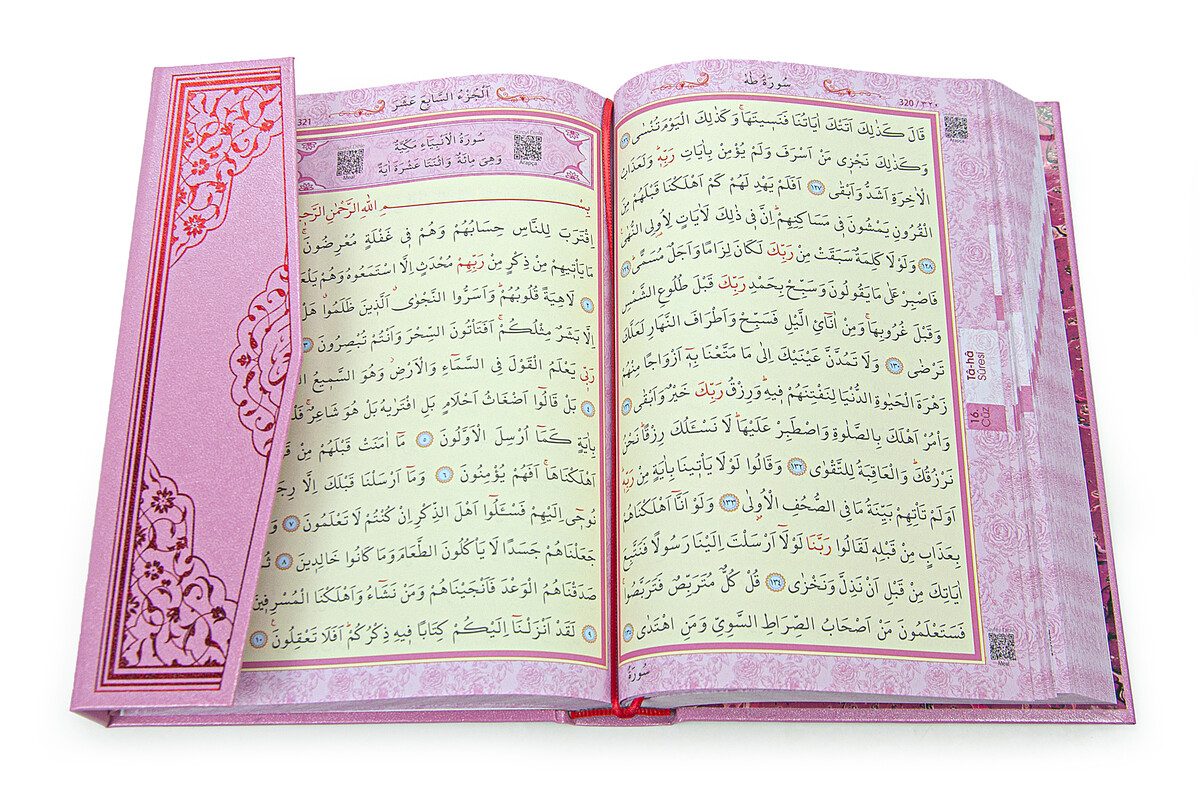 سُورَةُ طٰهٰ
320 / ٣٢٠
قَالَ كَذٰلِكَ اَتَتْكَ اٰيَاتُنَا فَنَسٖيتَهَاۚ وَكَذٰلِكَ الْيَوْمَ تُنْسٰى ﴿١٢٦﴾
وَكَذٰلِكَ نَجْزٖى مَنْ اَسْرَفَ وَلَمْ يُؤْمِنْ بِاٰيَاتِ رَبِّهٖؕ وَلَعَذَابُ
الْاٰخِرَةِ اَشَدُّ وَاَبْقٰى ﴿١٢٧﴾ اَفَلَمْ يَهْدِ لَهُمْ كَمْ اَهْلَكْنَا قَبْلَهُمْ مِنَ
الْقُرُونِ يَمْشُونَ فٖى مَسَاكِنِهِمْؕ اِنَّ فٖى ذٰلِكَ لَاٰيَاتٍ لِاُولِى النُّهٰى
﴿١٢٨﴾ وَلَوْلَا كَلِمَةٌ سَبَقَتْ مِنْ رَبِّكَ لَكَانَ لِزَامًا وَاَجَلٌ مُسَمًّىؕ ﴿١٢٩﴾
فَاصْبِرْ عَلٰى مَا يَقُولُونَ وَسَبِّحْ بِحَمْدِ رَبِّكَ قَبْلَ طُلُوعِ الشَّمْسِ
وَقَبْلَ غُرُوبِهَاۚ وَمِنْ اٰنَائِ الَّيْلِ فَسَبِّحْ وَاَطْرَافَ النَّهَارِ لَعَلَّكَ
تَرْضٰى ﴿١٣٠﴾ وَلَا تَمُدَّنَّ عَيْنَيْكَ اِلٰى مَا مَتَّعْنَا بِهٖٓ اَزْوَاجًا مِنْهُمْ
زَهْرَةَ الْحَيٰوةِ الدُّنْيَا لِنَفْتِنَهُمْ فٖيهِؕ وَرِزْقُ رَبِّكَ خَيْرٌ وَاَبْقٰى ﴿١٣١﴾
وَاْمُرْ اَهْلَكَ بِالصَّلٰوةِ وَاصْطَبِرْ عَلَيْهَاؕ لَا نَسْـَٔلُكَ رِزْقًاؕ نَحْنُ
نَرْزُقُكَؕ وَالْعَاقِبَةُ لِلتَّقْوٰى ﴿١٣٢﴾ وَقَالُوا لَوْلَا يَاْتٖينَا بِاٰيَةٍ مِنْ رَبِّهٖؕ
اَوَلَمْ تَاْتِهِمْ بَيِّنَةُ مَا فِى الصُّحُفِ الْاُولٰى ﴿١٣٣﴾ وَلَوْ اَنَّٓا اَهْلَكْنَاهُمْ
بِعَذَابٍ مِنْ قَبْلِهٖ لَقَالُوا رَبَّنَا لَوْلَٓا اَرْسَلْتَ اِلَيْنَا رَسُولًا فَنَتَّبِعَ
اٰيَاتِكَ مِنْ قَبْلِ اَنْ نَذِلَّ وَنَخْزٰى ﴿١٣٤﴾ قُلْ كُلٌّ مُتَرَبِّصٌ فَتَرَبَّصُواۚ
فَسَتَعْلَمُونَ مَنْ اَصْحَابُ الصِّرَاطِ السَّوِىِّ وَمَنِ اهْتَدٰى ﴿١٣٥﴾
سُورَةُ
Arapça
Tâ-hâ
Sûresi
16.
Cüz
Meal
اَلْجُزْءُ السَّابِعَ عَشَرَ
321
سُورَةُ الْاَنْبِيَاءِ مَكِّيَّةٌ
وَهِىَ مِائَةٌ وَاثْنَتَا عَشْرَةَ اٰيَةً
Arapça
Meal
بِسْمِ اللّٰهِ الرَّحْمٰنِ
اِقْتَرَبَ لِلنَّاسِ حِسَابُهُمْ وَهُمْ فٖى غَفْلَةٍ مُعْرِضُونَۚ
مَا يَاْتٖيهِمْ مِنْ ذِكْرٍ مِنْ رَبِّهِمْ مُحْدَثٍ اِلَّا اسْتَمَعُوهُ وَهُمْ
﴿٢﴾ لَاهِيَةً قُلُوبُهُمْؕ وَاَسَرُّوا النَّجْوٰىۗ الَّذٖينَ ظَلَمُواۗ هَلْ
اِلَّا بَشَرٌ مِثْلُكُمْۚ اَفَتَاْتُونَ السِّحْرَ وَاَنْتُمْ تُبْصِرُونَ ﴿٣﴾
رَبّٖى يَعْلَمُ الْقَوْلَ فِى السَّمَٓاءِ وَالْاَرْضِؗ وَهُوَ السَّمٖيعُ
﴿٤﴾ بَلْ قَالُٓوا اَضْغَاثُ اَحْلَامٍ بَلِ افْتَرٰيهُ بَلْ هُوَ شَاعِرٌۚ
بِاٰيَةٍ كَمَٓا اُرْسِلَ الْاَوَّلُونَ ﴿٥﴾ مَٓا اٰمَنَتْ قَبْلَهُمْ مِنْ
اَهْلَكْنَاهَاۚ اَفَهُمْ يُؤْمِنُونَ ﴿٦﴾ وَمَٓا اَرْسَلْنَا قَبْلَكَ اِلَّا
نُوحٖٓى اِلَيْهِمْ فَسْـَٔلُٓوا اَهْلَ الذِّكْرِ اِنْ كُنْتُمْ لَا تَعْلَمُونَ ﴿٧﴾
جَعَلْنَاهُمْ جَسَدًا لَا يَاْكُلُونَ الطَّعَامَ وَمَا كَانُوا خَالِدٖينَ ﴿٨﴾
صَدَقْنَاهُمُ الْوَعْدَ فَاَنْجَيْنَاهُمْ وَمَنْ نَشَٓاءُ وَاَهْلَكْنَا الْمُسْرِفٖينَ
﴿٩﴾ لَقَدْ اَنْزَلْنَٓا اِلَيْكُمْ كِتَابًا فٖيهِ ذِكْرُكُمْؕ اَفَلَا تَعْقِلُونَ ﴿١٠﴾